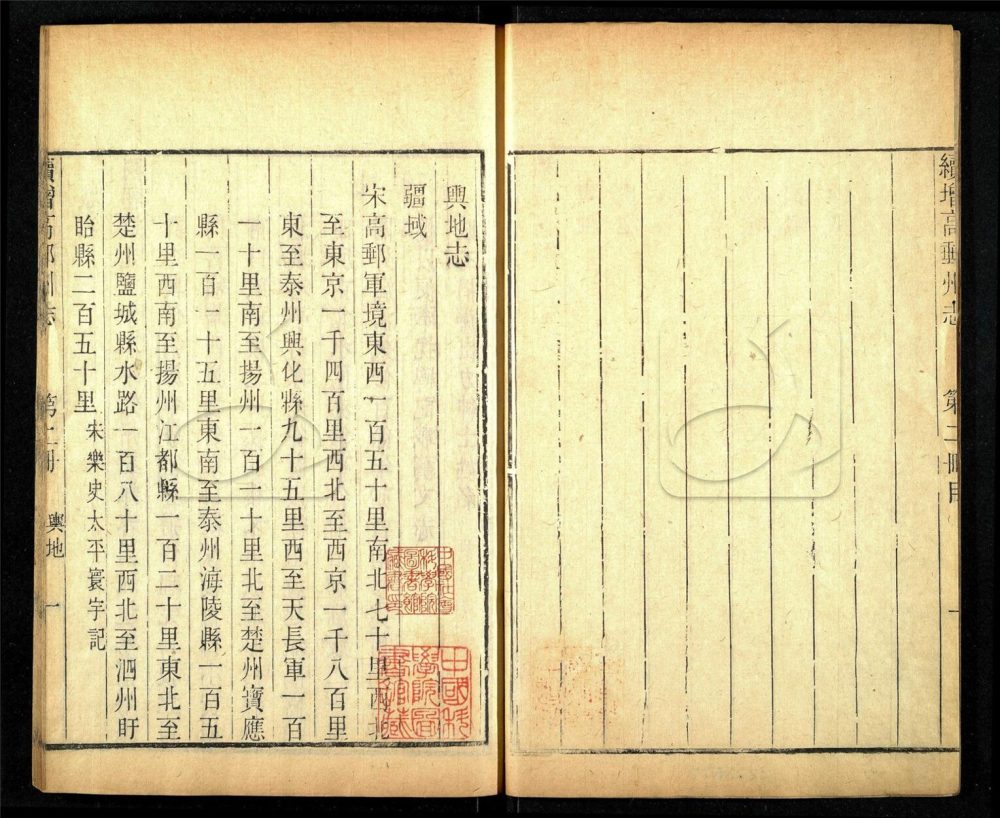 續增高郵州志 第二冊目 一
輿地志
疆域
宋高郵軍境東西一百五十里南北七十里西北
至東京一千四百里西北至西京一千八百里
東至泰州興化縣九十五里西至天長軍一百
一十里南至揚州一百一十里北至楚州寶應
縣一百一十五里東南至泰州海陵縣一百五
十里西南至揚州江都縣一百二十里東北至
楚州鹽城縣水路一百八十里西北至泗州盱
眙縣二百五十里 宋樂史太平寰宇記
續增高郵州志 第二冊 輿地 一
中國社會
科學院
圖書館
中國科
學院圖
書館藏